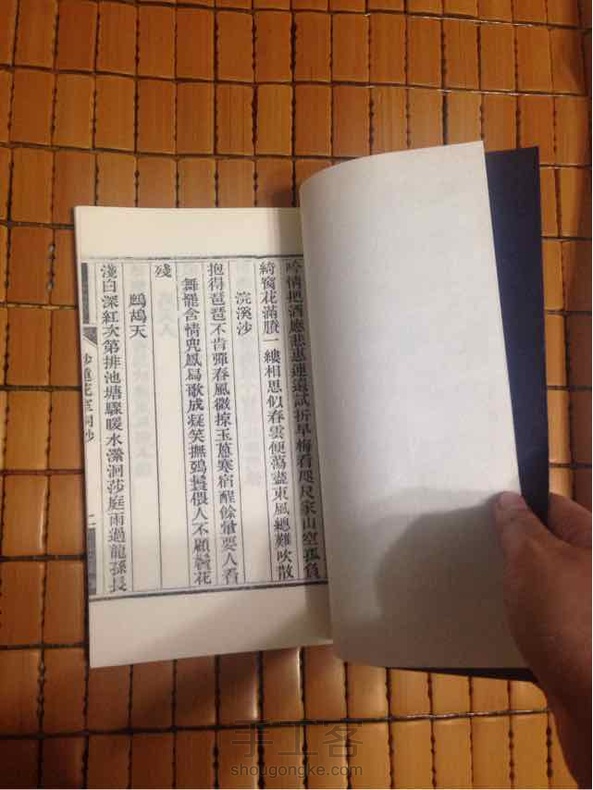 吟情把酒應悲惠連遠試折早梅看咫尺家山空孤負
綺窗花滿賸一縷相思似春雲便蕩東風總難吹散
浣溪沙
抱得琵琶不肯彈春風微掠玉蔥寒宿酲餘暈要人看
舞罷含情兜鳳舄歌成凝笑撫鴉鬟偎人不顧鬢花
殘
鷓鴣天
淺白深紅次第排池塘驟暖水瀠洄莎庭雨過龍孫長
妙蓮花室詞鈔
手工客
shougongke.com